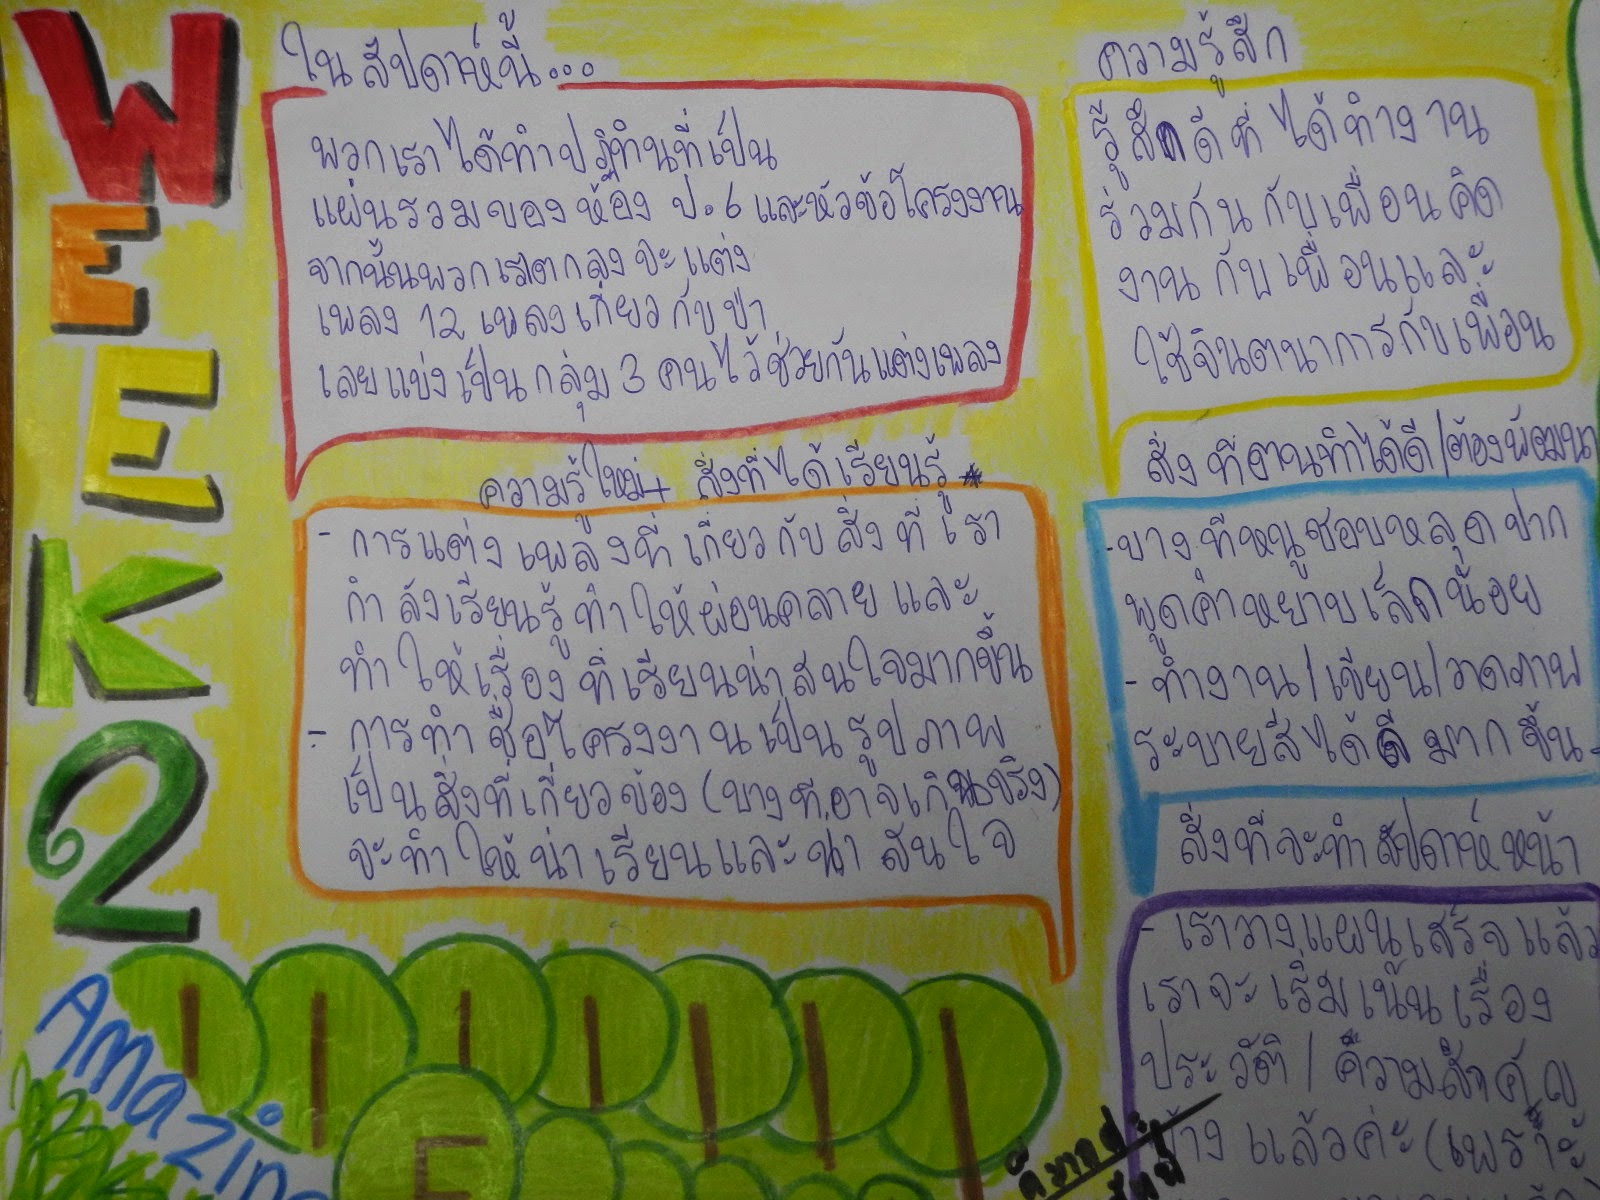 WEEK2
ในสัปดาห์นี้...
พวกเราได้ทำปฏิทินที่เป็น
แผ่นรวมของห้อง ป.6 และหัวข้อโครงงาน
จากนั้นพวกเราตกลงจะแต่ง
เพลง 12 เพลงเกี่ยวกับป่า
เลยแบ่งเป็นกลุ่ม 3 คนไว้ช่วยกันแต่งเพลง
ความรู้ใหม่+ สิ่งที่ได้เรียนรู้
- การแต่งเพลงที่เกี่ยวกับสิ่งที่เรา
กำลังเรียนรู้ทำให้ผ่อนคลายและ
ทำให้เรื่องที่เรียนน่าสนใจมากขึ้น
- การทำชื่อโครงงานเป็นรูปภาพ
เป็นสิ่งที่เกี่ยวข้อง (บางทีอาจเกินจริง)
จะทำให้น่าเรียนและน่าสนใจ
ความรู้สึก
รู้สึกดีที่ได้ทำงาน
ร่วมกันกับเพื่อนคิด
งานกับเพื่อนและ
ใช้จินตนาการกับเพื่อน
สิ่งที่ตนทำได้ดี/ต้องพัฒนา
- บางทีหนูชอบหลุดปาก
พูดคำหยาบเล็กน้อย
- ทำงาน/เขียน/วาดภาพ
ระบายสีได้ดีมากขึ้น
สิ่งที่จะทำสัปดาห์หน้า
- เราวางแผนเสร็จแล้ว
เราจะเริ่มเน้นเรื่อง
ประวัติ/ความสำคัญ
บ้างแล้วค่ะ (เพราะ
Amazin